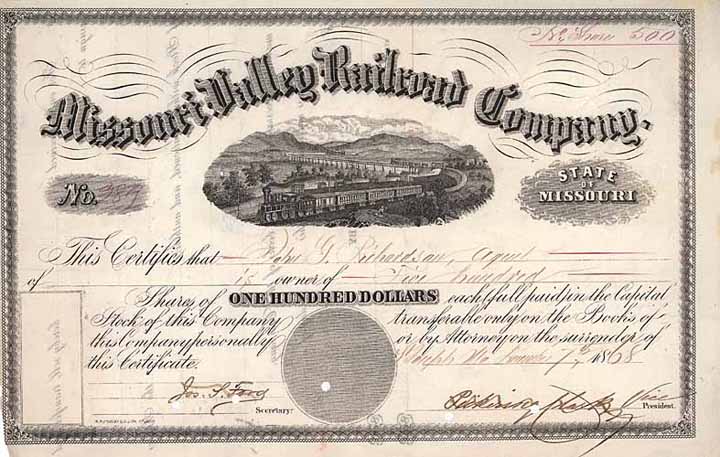 No. Shares 500
Missouri Valley Railroad Company.
No. 389
STATE
OF
MISSOURI
This Certifies that John G. Richardson, Agent
of is owner of Five hundred
Shares of ONE HUNDRED DOLLARS each (full paid) in the Capital
Stock of this Company transferable only on the Books of
this Company personally or by Attorney on the surrender of
this Certificate. St Joseph Mo 7th 1868
Jos. S. Ford
Secretary.
Vice
President.